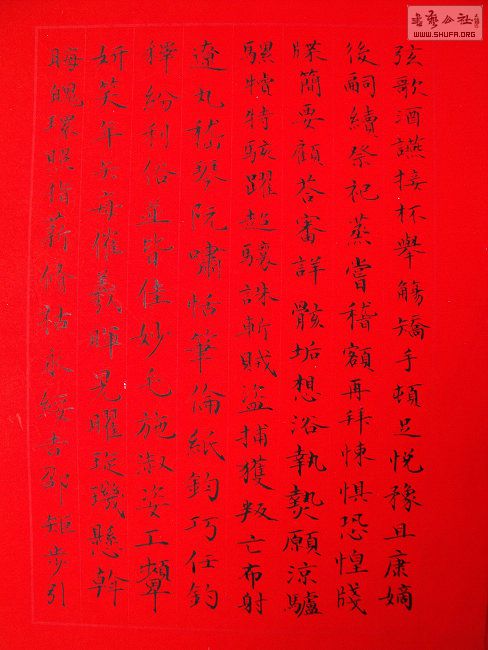 书艺公社
WWW.SHUFA.ORG
弦歌酒讌接杯舉觴矯手頓足悅豫且康嫡
後嗣續祭祀蒸嘗稽顙再拜悚懼恐惶牋
牒簡要顧荅審詳骸垢想浴執熱願涼驢
騾犢特駭躍超驤誅斬賊盜捕獲叛亡布射
遼丸嵇琴阮嘯恬筆倫紙鈞巧任釣
釋紛利俗並皆佳妙毛施淑姿工顰
妍笑年矢每催羲暉晃曜琁璣懸斡
晦魄環照指薪修祜永綏吉劭矩步引